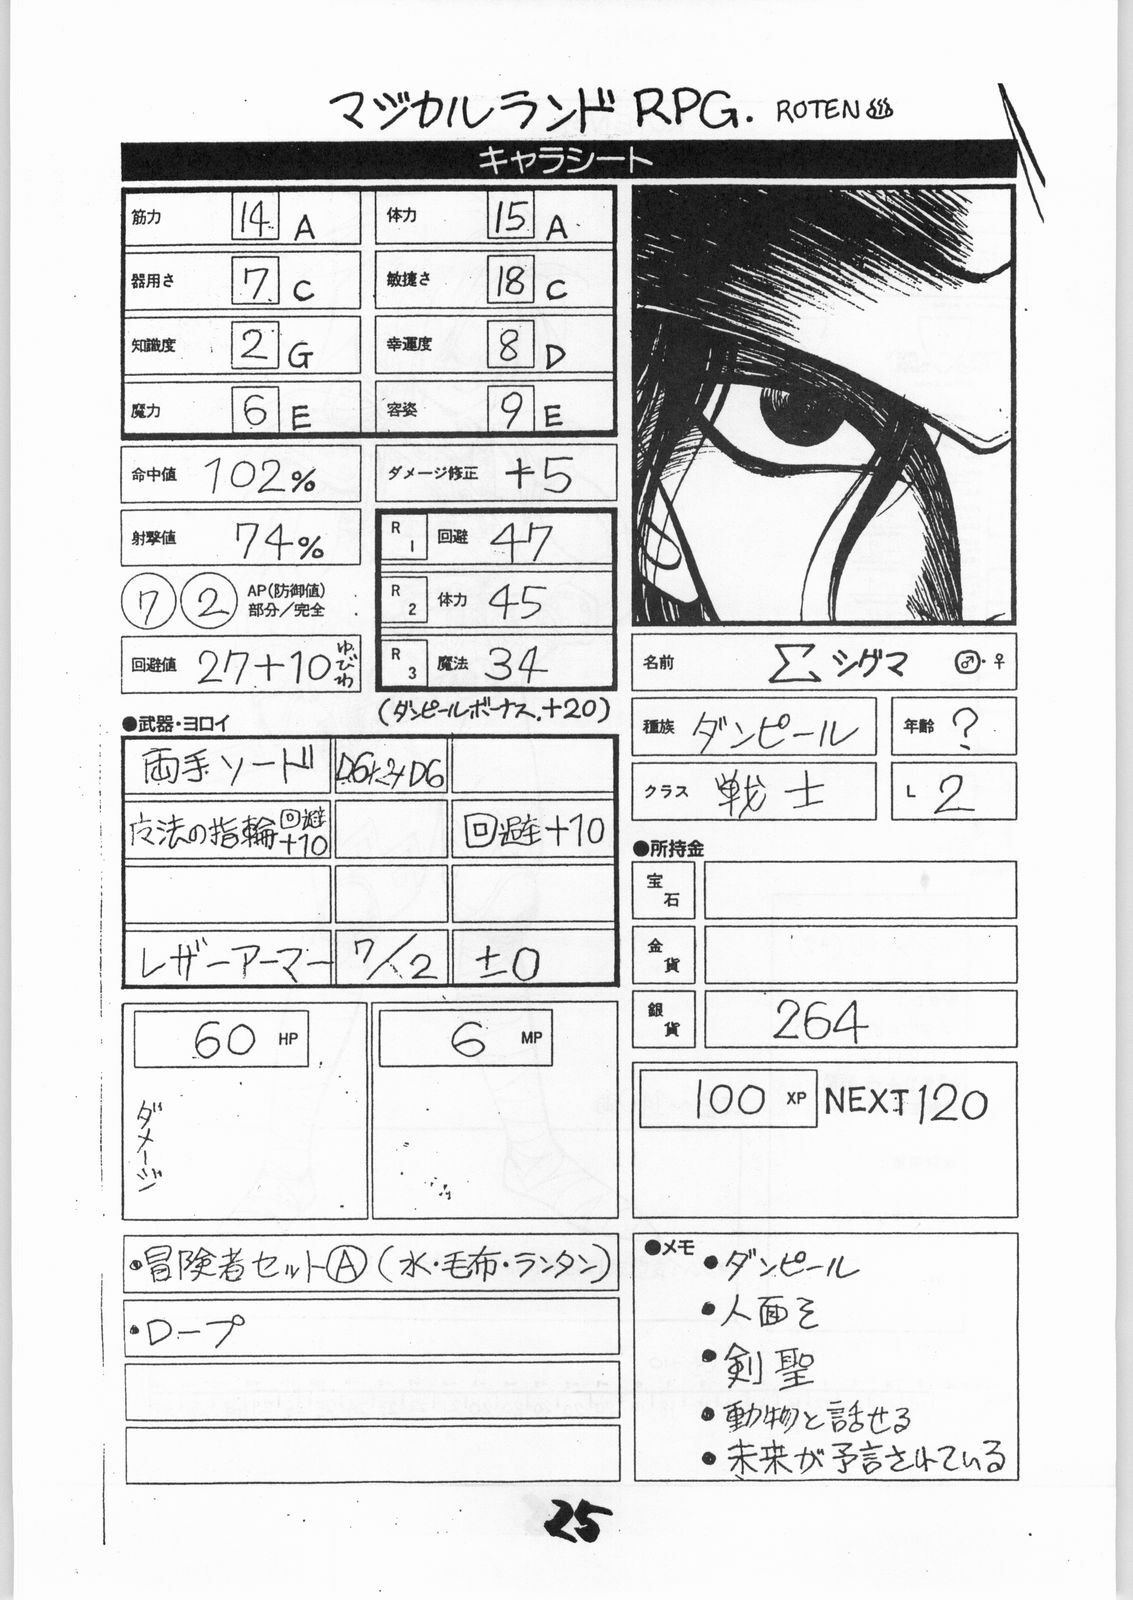 マジカルランド RPG. ROTEN♨
キャラシート
筋力 14 A
体力 15 A
器用さ 7 C
敏捷さ 18 C
知識度 2 G
幸運度 8 D
魔力 6 E
容姿 9 E
命中値 102%
ダメージ修正 +5
射撃値 74%
R1 回避 47
7 2 AP(防御値)
部分/完全
R2 体力 45
回避値 27+10 ゆびわ
R3 魔法 34
(ダンピールボーナス.+20)
名前 Σ シグマ ♂・♀
種族 ダンピール
年齢 ?
クラス 戦士
L 2
●武器・ヨロイ
両手ソード
魔法の指輪 回避+10
回避+10
レザーアーマー 7/2 ±0
●所持金
宝石
金貨
銀貨 264
60 HP
ダメージ
6 MP
100 XP NEXT 120
・冒険者セットⒶ(水・毛布・ランタン)
・ロープ
●メモ
・ダンピール
・人面そ
・剣聖
・動物と話せる
・未来が予言されている
25